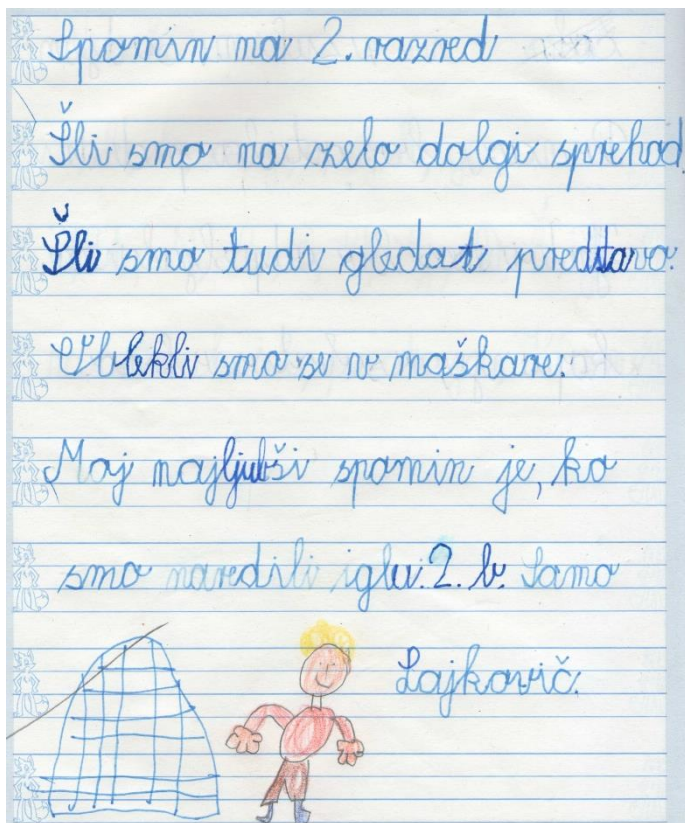 Spomin na 2. razred
Šli smo na zelo dolgi sprehod
Šli smo tudi gledat predstavo.
Oblekli smo se v maškare.
Moj najljubši spomin je, ko
smo naredili iglu. 2. b. Samo
Lajkovič.